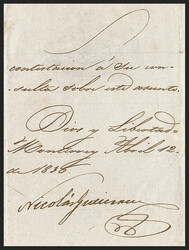 contestacion á su con-
sulta sobre este asunto.
Dios y Libertad
Monterey Abril 12
de 1836.
Nicolás Gutierrez